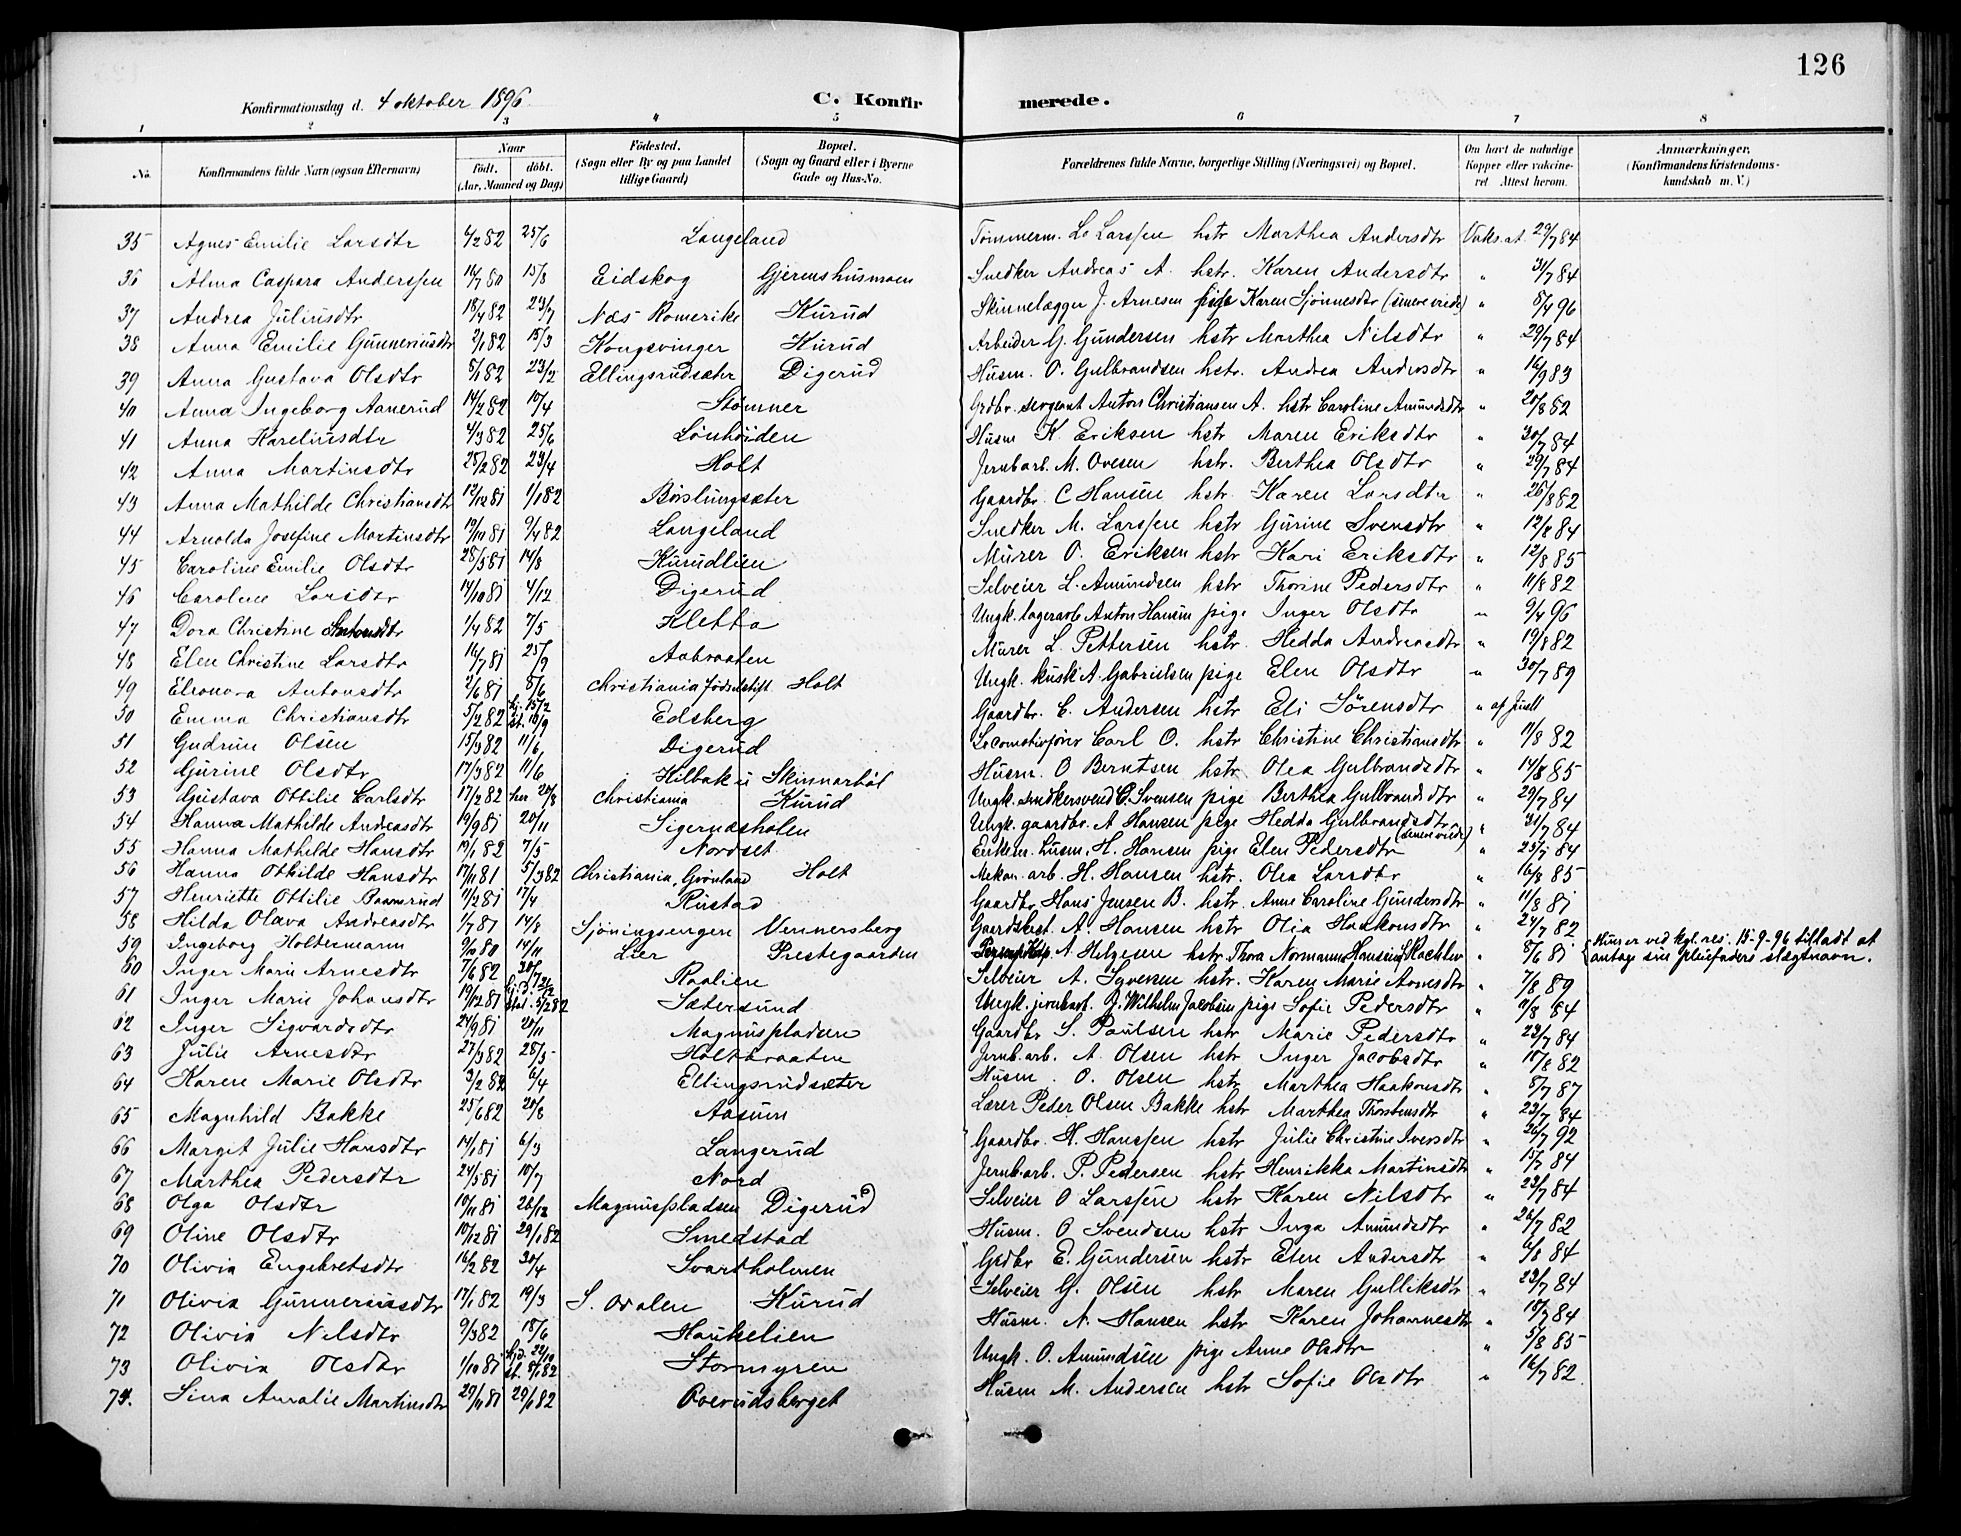 126
Konfirmationsdag d. 4 oktober 1896. C. Konfirmerede.
1 2 3 4 5 6 7 8
No. Konfirmandens fulde Navn (ogsaa Efternavn) Naar født. døbt. (Aar, Maaned og Dag) Fødested. (Sogn eller By og paa Landet tillige Gaard) Bopæl. (Sogn og Gaard eller i Byerne Gade og Hus-No. Forældrenes fulde Navne, borgerlige Stilling (Næringsvei) og Bopæl. Om havt de naturlige Kopper eller vakcineret. Attest herom. Anmærkninger, (Konfirmandens Kristendomskundskab m. V.)
35 Agnes Emilie Larsdtr 4/2 82 25/6 Langeland Tømmerm. L. Larssen hstr Marthea Andersdtr Vaks. at. 29/7 84
36 Alma Caspara Anderssen 16/7 80 15/8 Eidskog Gjermshusmoen Snedker Andreas A. hstr. Karen Andersdtr " 31/7 84
37 Andrea Juliusdtr 18/4 82 23/7 Næs Romerike Kurud Skinnelægger J. Arnesen pige Karen Sjønnesdtr " 8/4 96
38 Anna Emilie Gunneriusdtr 2/1 82 15/3 Kongsvinger Kurud Arbeider G. Gundersen hstr Marthea Nilsdtr " 29/7 84
39 Anna Gustava Olsdtr 8/1 82 23/2 Ellingsrudsæter Digerud Husm. O. Gulbrandsen hstr. Andrea Andersdtr " 16/9 83
40 Anna Ingeborg Aanerud 14/2 82 10/4 Stømner Grdbr. sergeant Anton Christiansen A. hstr Caroline Amundsdtr " 20/8 82
41 Anna Kareliusdtr 4/3 82 25/6 Lønhøiden Husm K. Eriksen hstr Maren Eriksdtr " 30/7 84
42 Anna Martinsdtr 25/2 82 23/4 Holt Jernb.arb. M. Ovesen hstr. Berthea Olsdtr " 29/7 84
43 Anna Mathilde Christiansdtr 12/12 81 1/1 82 Børslungsæter Gaardbr. C Hansen hstr Karen Larsdtr " 26/8 82
44 Arnolda Josefine Martinsdtr 19/11 81 9/4 82 Langeland Snedker M. Larssen hstr Gurine Svensdtr " 12/8 84
45 Caroline Emilie Olsdtr 28/5 81 14/8 Kurudlien Murer O. Eriksen hstr Kari Eriksdtr " 12/8 85
46 Caroline Larsdtr 14/10 81 4/12 Digerud Selveier L. Amundsen hstr Thorine Pedersdtr " 11/8 82
47 Dora Christine Antonsdtr 1/4 82 7/5 Kletta Ungk. lagerarb Anton Hansen pige Inger Olsdtr " 9/4 96
48 Elen Christine Larsdtr 16/7 81 25/9 Aabraaten Murer L. Pettersen hstr. Hedda Andreasdtr " 19/8 82
49 Eleonora Antonsdtr 2/6 81 8/6 Christiania Fødselsstift. Holt Ungk. kusk A. Gabrielsen pige Elen Olsdtr " 30/7 89
50 Emma Christiansdtr 5/2 82 hj. 15/2 st. 10/9 Edsberg Gaardbr. C. Andersen hstr Eli Sørensdtr " af Juell
51 Gudrun Olsen 15/3 82 11/6 Digerud Locomotivfører Carl O. hstr Christine Christiansdtr " 11/8 82
52 Gurine Olsdtr 17/3 82 11/6 Hilbak u Skinnarbøl Husm. O Berntsen hstr Olea Gulbrandsdtr " 14/8 85
53 Gustava Ottilie Carlsdtr 17/2 82 20/8 Christiania Kurud Ungk. snedkersvend C. Svensen pige Berthea Gulbrandsdtr " 29/7 84
54 Hanna Mathilde Andreasdtr 19/9 81 20/11 Sigernæsholen Ungk. gaardbr. A Hansen pige Hedda Gulbrandsdtr " 31/7 84
55 Hanna Mathilde Hansdtr 19/1 82 7/5 Nordset Enkem. husm. H. Hansen pige Elen Pedersdtr " 25/7 84
56 Hanna Othilde Hansdtr 17/11 81 5/3 82 Christiania, Grønland Holt Mekan. arb. H. Hansen hstr. Olea Larsdtr " 16/8 85
57 Henriette Ottilie 11/2 81 17/4 Rustad Gaardbr Hans Jensen B. hstr. Anne Caroline Gundersdtr " 11/8 81
58 Hilda Olava Andreasdtr 1/7 81 14/8 Sjøningsengen Vennersberg A. Hansen hstr Olia Haakonsdtr " 24/7 82
59 Ingeborg Holtermann 9/10 80 14/11 Lier Prestegaarden A. Helgesen hstr Thora Normann Hansine " 8/6 81 ved kgl. res. 15-9-96 tilladt at antage sin pleiefaders slægtnavn.
60 Inger Marie Arnesdtr 7/6 82 30/7 Raalien Selveier A. Syversen hstr. Karen Marie Arnesdtr " 7/8 89
61 Inger Marie Johansdtr 19/12 81 st. 5/2 82 Sætersund Ungk. jernb.arb. J. Wilhelm Jacobsen pige Sofie Pedersdtr " 11/8 84
62 Inger Sigvardsdtr 24/9 81 20/11 Magnuspladsen Gaardbr S. Paulsen hstr Marie Pedersdtr " 23/7 84
63 Julie Arnesdtr 27/3 82 28/5 Holtbraaten Jernb.arb. A. Olsen hstr Inger Jacobsdtr " 10/8 82
64 Karen Marie Olsdtr 3/2 82 6/4 Ellingsrudsæter Husm. O. Olsen hstr Marthea Haakonsdtr " 8/7 87
65 Magnhild Bakke 25/6 82 20/8 Aasum Lærer Peder Olsen Bakke hstr Marthea Thorstensdtr " 23/7 84
66 Margit Julie Hansdtr 14/1 81 6/3 Langerud Gaardbr. H. Hanssen hstr Julie Christine Iversdtr " 26/7 92
67 Marthea Pedersdtr 24/5 81 10/7 Nord Jernb.arb. P. Pedersen hstr Henrikka Martinsdtr " 15/7 84
68 Olga Olsdtr 10/11 81 26/12 Magnuspladsen Digerud Selveier O Larssen hstr Karen Nilsdtr " 23/7 84
69 Oline Olsdtr 10/12 81 29/1 82 Smedstad Husm. O Svendsen hstr Inga Amundsdtr " 26/7 82
70 Olivia Engebretsdtr 16/2 82 30/4 Svartholmen Grdbr E. Gundersen hstr Elen Andersdtr " 6/8 84
71 Olivia Gunneriusdtr 17/1 82 19/3 S. Odalen Kurud Selveier G. Olsen hstr Maren Gulliksdtr " 23/7 84
72 Olivia Nilsdtr 9/3 82 18/6 Haukelien Husm. N. Hansen hstr Karen Johannesdtr " 18/7 84
73 Olivia Olsdtr 1/10 81 hjd. 22/10 st. 8/1 82 Stormyren Ungk. O. Amundsen pige Anne Olsdtr " 5/8 85
74. Sina Amalie Martinsdtr 29/11 81 29/1 82 Overudsberget Husm M. Andersen hstr Sofie Olsdtr " 16/7 82